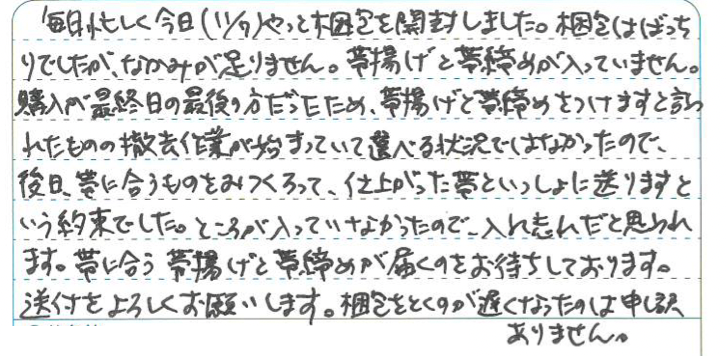 毎日忙しく今日(11/9)やっと梱包を開封しました。梱包はばっち
りでしたが、なかみが足りません。帯揚げと帯締めが入っていません。
購入が最終日の最後の方だったため、帯揚げと帯締めをつけますと言わ
れたものの撤去作業が始まっていて選べる状況ではなかったので、
後日、帯に合うものをみつくろって、仕上がった帯といっしょに送りますと
いう約束でした。ところが入っていなかったので、入れ忘れだと思われ
ます。帯に合う帯揚げと帯締めが届くのをお待ちしております。
送付をよろしくお願いします。梱包をとくのが遅くなったのは申し訳
ありません。